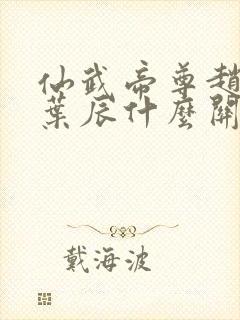 仙武帝尊趙
葉辰什麼關
戴海波